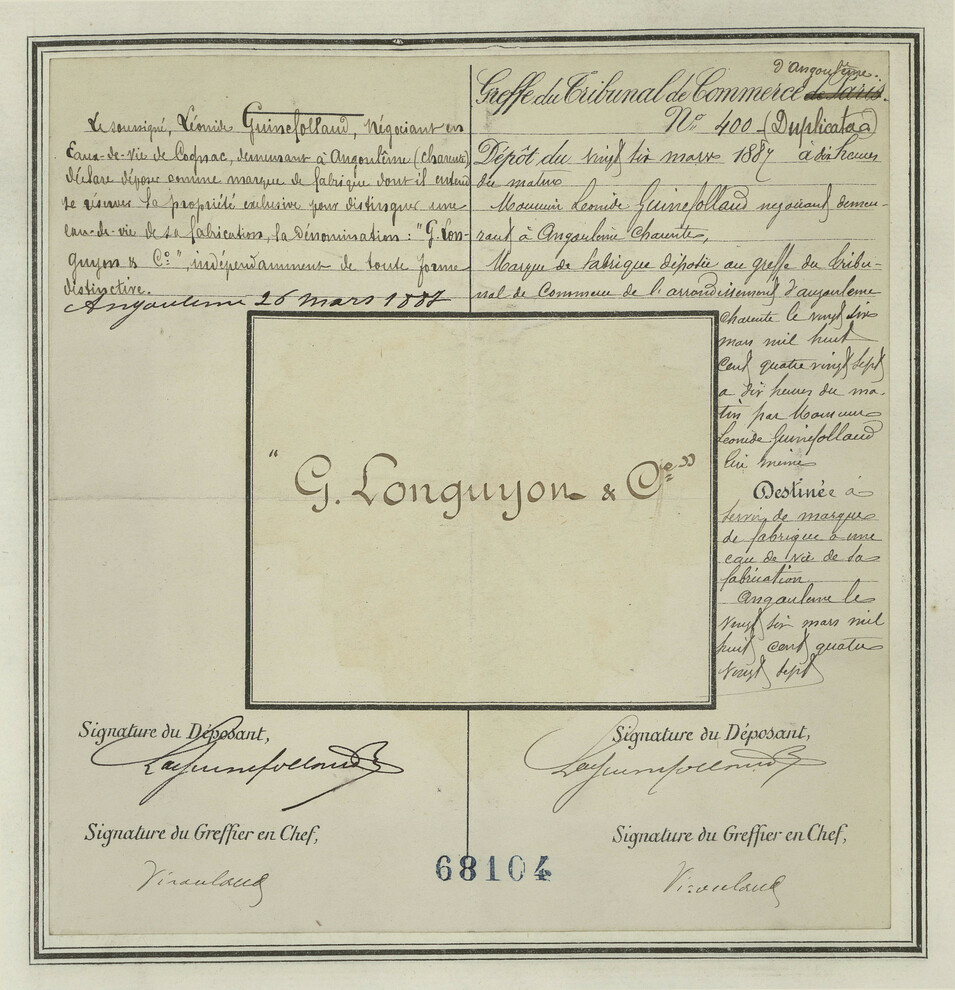 Le soussigné, Léonide Guinefollaud, Négociant en
Eaux-de-Vie de Cognac, demeurant à Angoulême (charente)
déclare déposer comme marque de fabrique dont il entend
se réserver la propriété exclusive pour distinguer une
eau-de-vie de sa fabrication, la dénomination : "G. Lon-
guyon & Cie" indépendamment de toute forme
distinctive.
Angoulême 26 mars 1887
d'Angoulême.
Greffe du Tribunal de Commerce de Paris.
No. 400 (Duplicata)
Dépôt du vingt six mars 1887 à dix heures
du matin
Monsieur Leonide Guinefollaud negociant demeu-
rant à Angouleme Charente,
Marque de fabrique déposée au greffe du tribu-
nal de Commerce de l'arrondissement d'angouleme
Charente le vingt six
mars mil huit
cent quatre vingt sept
a dix heures du ma-
tin par Monsieur
Leonide Guinefollaud
lui meme
Destinée à
servir de marque
de fabrique a une
eau de vie de sa
fabrication
Angouleme le
vingt six mars mil
huit cent quatre
vingt sept
"G. Longuyon & Cie"
Signature du Déposant,
Signature du Déposant,
Signature du Greffier en Chef,
Signature du Greffier en Chef,
68104